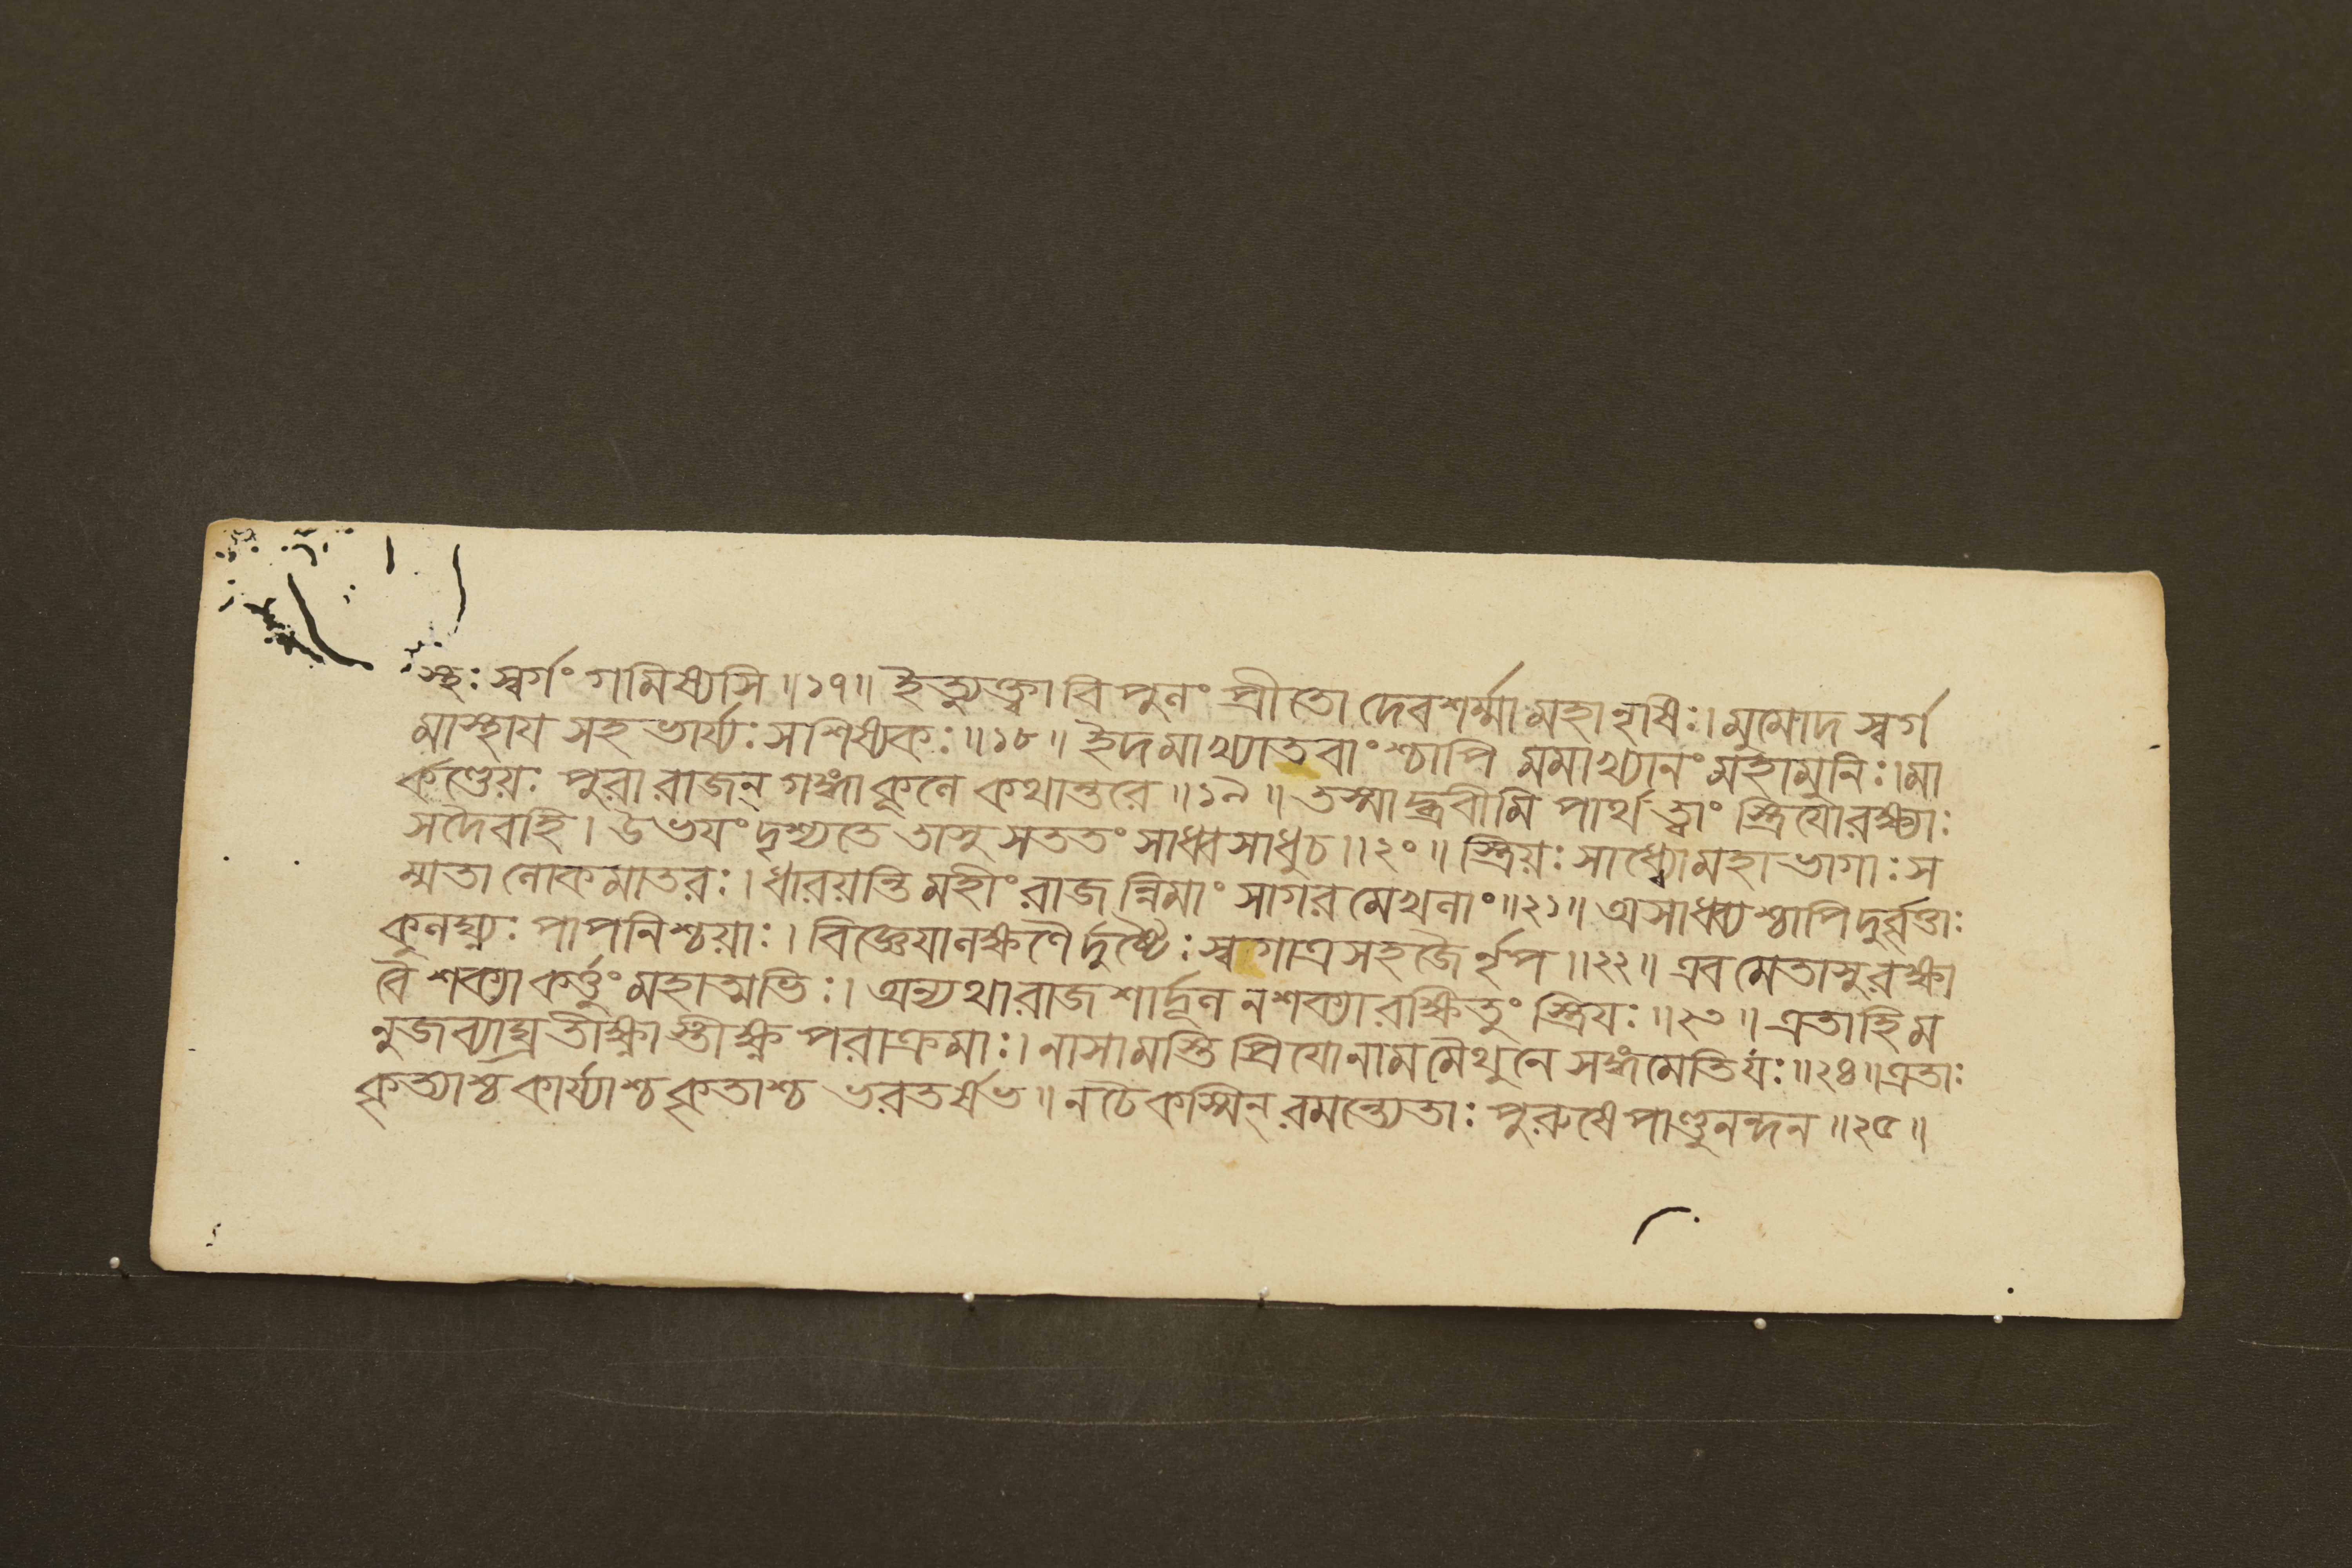 স্থঃ স্বর্গং গমিষ্যসি ॥১৭॥ ইত্যুক্ত্বা বিপুনং প্রীতো দেবশর্ম্মা মহানৃষিঃ। মুমোদ স্বর্গ
মাস্থায সহ ভার্য্যঃ সশিষ্যকঃ ॥১৮॥ ইদমাখ্যাতবাংশ্চাপি মমাখ্যানং মহামুনিঃ। মা
র্কণ্ডেয়ঃ পুরা রাজন্ গঙ্গাকূনে কথান্তরে ॥১৯॥ তস্মাদ্ব্রবীমি পার্থ ত্বাং স্ত্রিযো রক্ষ্যাঃ
সদৈবহি। উভযং দৃশ্যতে তাসু সততং সাধ্বসাধুচ ॥২০॥ স্ত্রিয়ঃ সাধ্ব্যো মহাভাগাঃ স
ম্মতা নোকমাতরঃ। ধারয়ন্তি মহীং রাজন্নিমাং সাগরমেখনাং ॥২১॥ অসাধ্ব্যশ্চাপি দুর্বৃত্তাঃ
কুনঘ্ন্যঃ পাপনিশ্চয়াঃ। বিজ্ঞেযা নক্ষণৈর্দুষ্টৈঃ স্বগাত্রসহজৈর্নৃপ ॥২২॥ এবমেতাসু রক্ষা
বৈ শক্যা কর্ত্তুং মহাত্মভিঃ। অন্যথা রাজশার্দ্দূন ন শক্যা রক্ষিতুং স্ত্রিযঃ ॥২৩॥ এতাহি ম
নুজব্যাঘ্র তীক্ষ্ণাস্তীক্ষ্ণপরাক্রমাঃ। নাসামস্তি প্রিযো নাম মৈথুনে সঙ্গমেতি যঃ ॥২৪॥ এতাঃ
কৃত্যাশ্চ কার্য্যাশ্চ কৃতাশ্চ ভরতর্ষভ ॥ ন চৈকস্মিন্ রমন্ত্যেতাঃ পুরুষে পাণ্ডুনন্দন ॥২৫॥